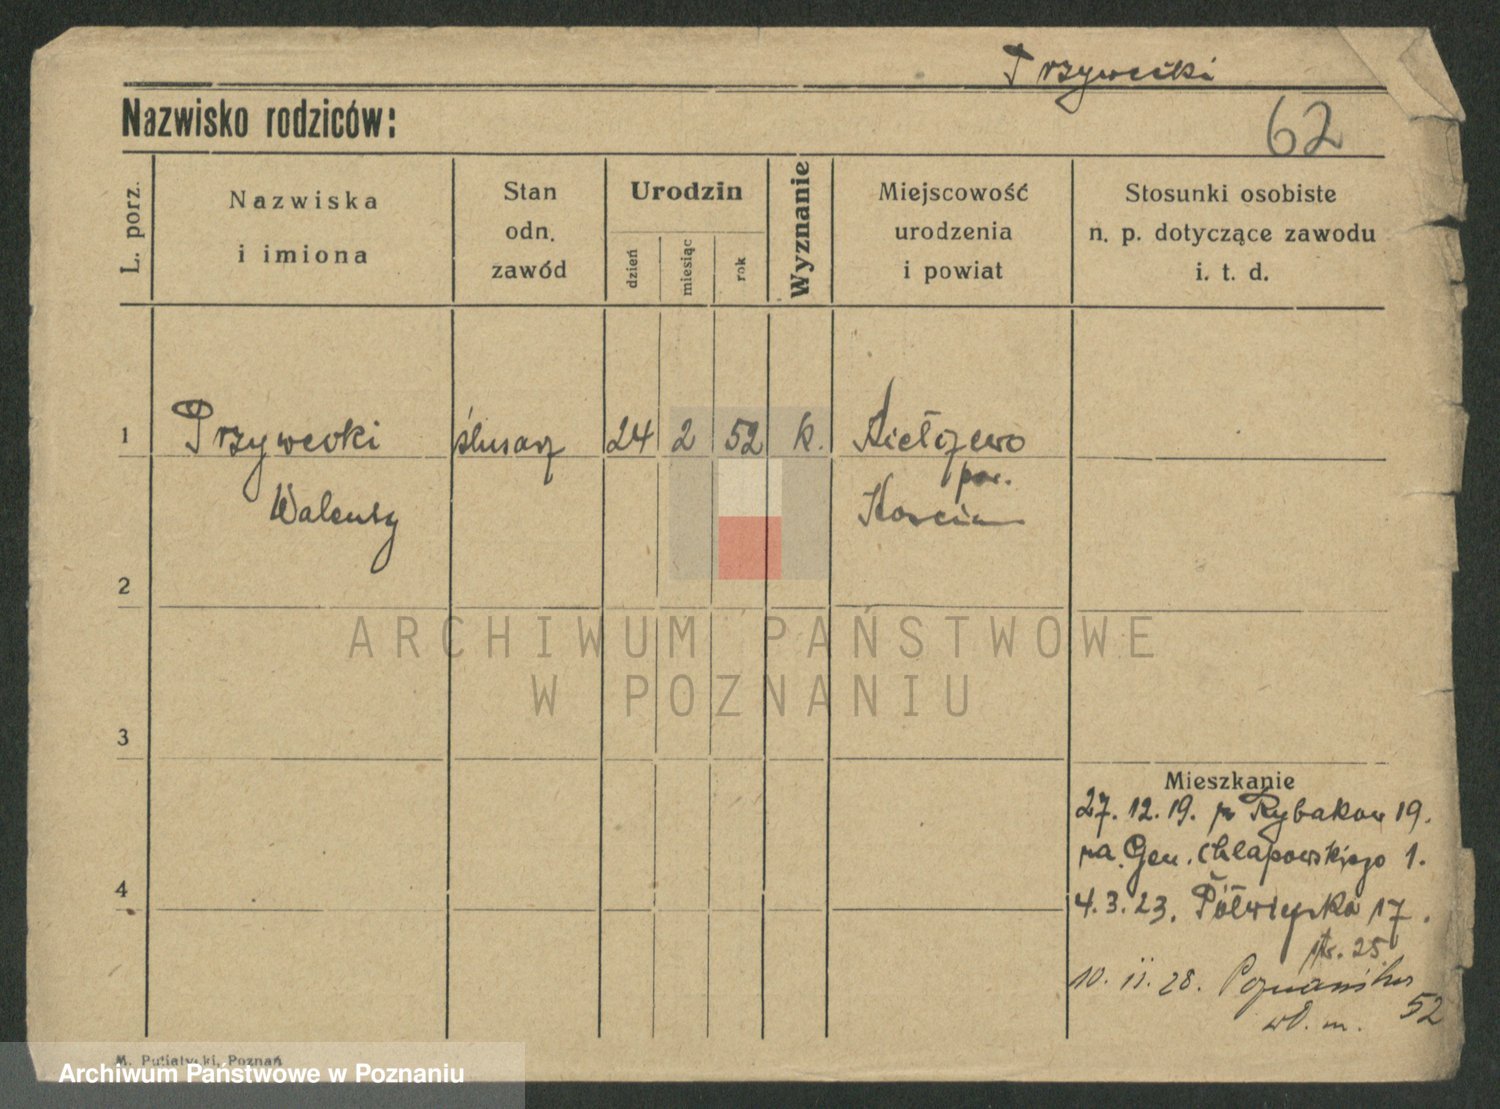 Przywecki
62
Nazwisko rodziców:
L. porz.
Nazwiska
i imiona
Stan
odn.
zawód
Urodzin
dzień
miesiąc
rok
Wyznanie
Miejscowość
urodzenia
i powiat
Stosunki osobiste
n. p. dotyczące zawodu
i. t. d.
1 Przywecki ślusarz 24 2 52 k. Kiełczewo
pow.
Walenty Kościan
2
ARCHIWUM PAŃSTWOWE
W POZNANIU
3
Mieszkanie
27. 12. 19. Rybakow 19.
na Gen. Chłapowskiego 1.
4
4. 3. 23. Półwiejska 17.
25.
10. 11. 28. Poznańska
52
M. Putiatycki, Poznań
Archiwum Państwowe w Poznaniu